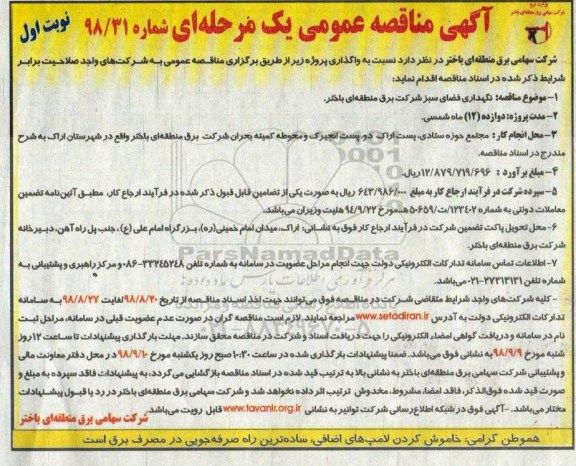 وزارت نیرو
شرکت سهامی برق منطقه‌ای باختر
آگهی مناقصه عمومی یک مرحله‌ای شماره ۹۸/۳۱
نوبت اول
شرکت سهامی برق منطقه‌ای باختر در نظر دارد نسبت به واگذاری پروژه زیر از طریق برگزاری مناقصه عمومی به شرکت‌های واجد صلاحیت برابر
شرایط ذکر شده در اسناد مناقصه اقدام نماید:
۱-موضوع مناقصه: نگهداری فضای سبز شرکت برق منطقه‌ای باختر.
۲-مدت پروژه: دوازده (۱۲) ماه شمسی.
۳-محل انجام کار: مجتمع حوزه ستادی، پست اراک دو، پست انجیرک و محوطه کمیته بحران شرکت برق منطقه‌ای باختر واقع در شهرستان اراک به شرح
مندرج در اسناد مناقصه.
۴- مبلغ برآورد : ۱۲/۸۷۹/۷۱۹/۶۹۶ ریال.
۵-سپرده شرکت در فرآیند ارجاع کار به مبلغ ۶۴۳/۹۸۶/۰۰۰ ریال به صورت یکی از تضامین قابل قبول ذکر شده در فرآیند ارجاع کار، مطابق آئین‌نامه تضمین
معاملات دولتی به شماره ۱۲۳۴۰۲/ت۵۰۶۵۹هـ مورخ ۹۴/۹/۲۲ هیئت وزیران می‌باشد.
۶-محل تحویل پاکت تضمین شرکت در فرآیند ارجاع کار فوق به نشانی: اراک، میدان امام خمینی(ره)، بزرگراه امام علی (ع)، جنب پل راه آهن، دبیرخانه
شرکت برق منطقه‌ای باختر.
۷-اطلاعات تماس سامانه تدارکات الکترونیکی دولت جهت انجام مراحل عضویت در سامانه به شماره تلفن ۳۳۲۴۵۲۴۸-۰۸۶ و مرکز راهبری و پشتیبانی به
شماره تلفن ۲۷۳۱۳۱۳۱-۰۲۱ می‌باشد.
-کلیه شرکت‌های واجد شرایط متقاضی شرکت در مناقصه فوق می‌توانند جهت اخذ اسناد مناقصه از تاریخ ۹۸/۸/۲۰ لغایت ۹۸/۸/۲۷ به سامانه
تدارکات الکترونیکی دولت به آدرس www.setadiran.ir مراجعه نمایند. لازم است مناقصه گران در صورت عدم عضویت قبلی در سامانه، مراحل ثبت
نام در سامانه و دریافت گواهی امضای الکترونیکی را جهت دریافت اسناد و شرکت در مناقصه محقق سازند. مهلت بارگذاری پیشنهادات تا ساعت ۱۲ روز
شنبه مورخ ۹۸/۹/۹ به نشانی فوق می‌باشد. ضمنا پیشنهادات بارگذاری شده در ساعت ۱۰:۳۰ صبح روز یکشنبه مورخ ۹۸/۹/۱۰ در محل دفتر معاونت مالی
و پشتیبانی شرکت سهامی برق منطقه‌ای باختر به نشانی بالا به ترتیب قید شده در اسناد مناقصه بازگشایی می‌گردد، به پیشنهادات فاقد سپرده به مبلغ و
صورت قید شده فوق‌الذکر، فاقد امضا، مشروط، مخدوش ترتیب اثر داده نخواهد شد و شرکت سهامی برق منطقه‌ای باختر در رد یا قبول پیشنهادات
مختار می‌باشد. -آگهی فوق در شبکه اطلاع‌رسانی شرکت توانیر به نشانی www.tavanir.org.ir قابل رویت می‌باشد.
شرکت سهامی برق منطقه‌ای باختر
هموطن گرامی: خاموش کردن لامپ‌های اضافی، ساده‌ترین راه صرفه‌جویی در مصرف برق است
ParsNamadData
۰۲۱-۸۸۳۴۹۶۷۰-۵